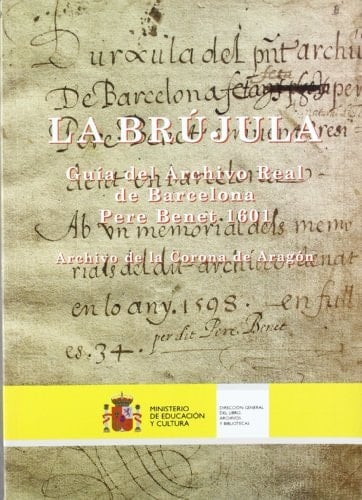 del pñt archiu
De Barcelona feta
LA BRÚJULA
Guía del Archivo Real
de Barcelona
Pere Benet 1601
Ab un memorial dels memo
Archivo de la Corona de Aragón
rials del dit
en lo any. 1598. en full
es. 34. per dit Pere Benet
MINISTERIO
DE EDUCACIÓN
Y CULTURA
DIRECCIÓN GENERAL
DEL LIBRO,
ARCHIVOS
Y BIBLIOTECAS